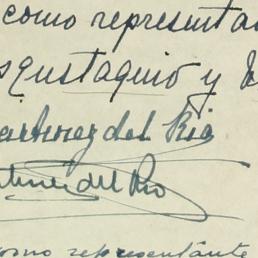 como representa
Eustaquio y E
artinez del Rio
tinez del Rio
omo representante